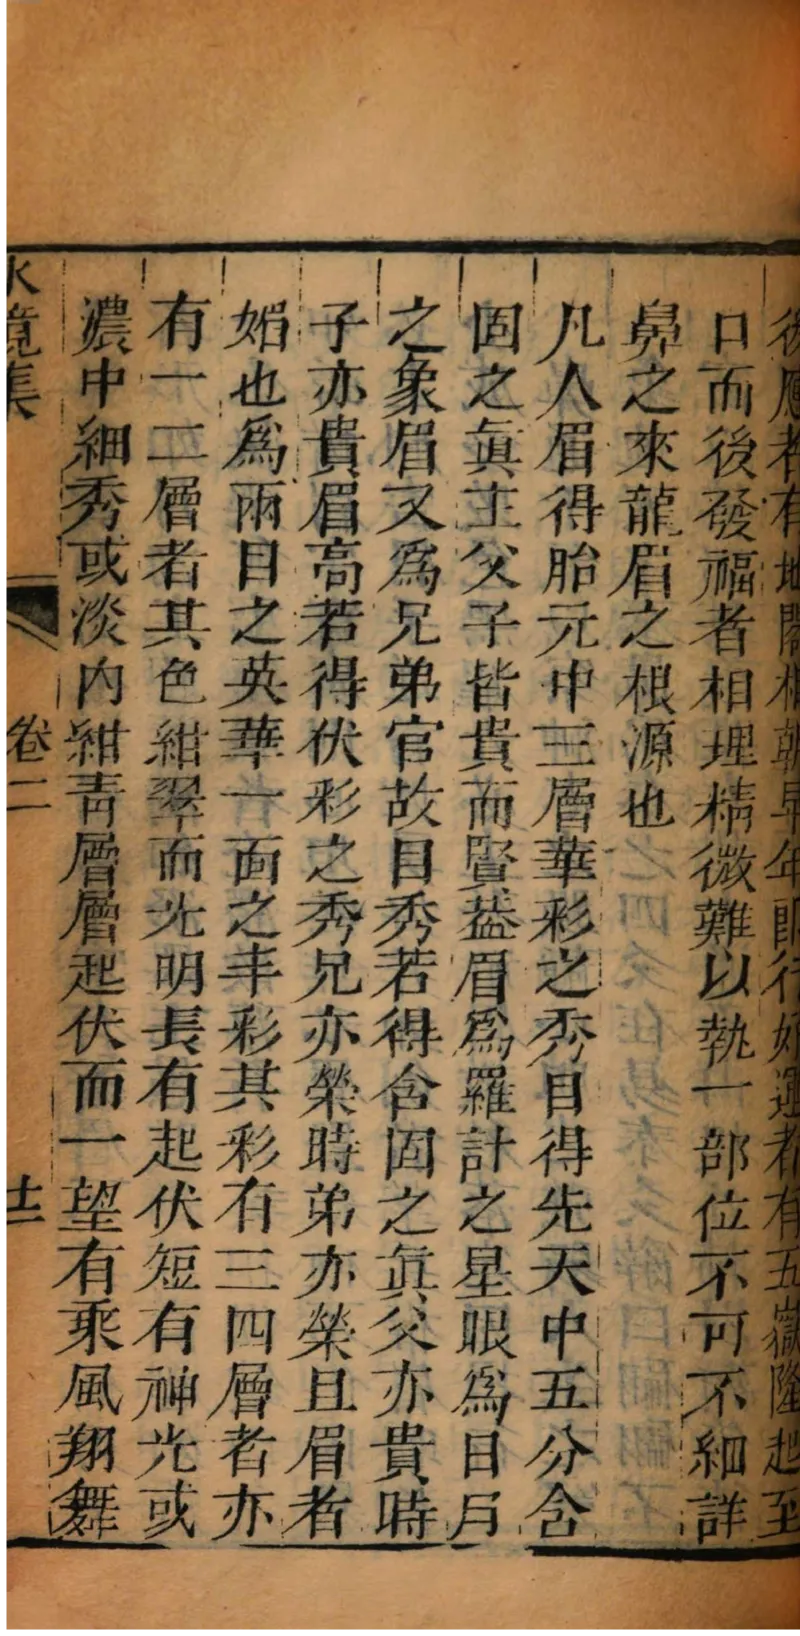 後應者有地閣相朝早年即行好運者有五嶽隆起至
口而後發福者相理精微難以執一部位不可不細詳
鼻之來龍眉之根源也
凡人眉得胎元中三層華彩之秀目得先天中五分含
固之眞主父子皆貴而賢葢眉爲羅計之星眼爲日月
之象眉又爲兄弟官故目秀若得含固之眞父亦貴時
子亦貴眉高若得伏彩之秀兄亦榮時弟亦榮且眉者
媚也爲兩目之英華一面之丰彩其彩有三四層者亦
有一二層者其色紺翠而光明長有起伏短有神光或
濃中細秀或淡內紺靑層層起伏而一望有乘風翔舞
水鏡集 卷二 十二